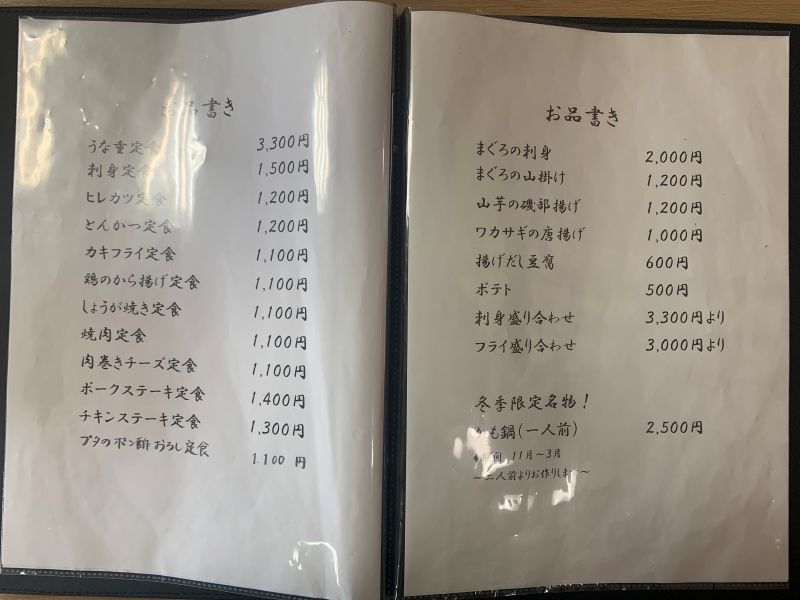 お品書き
うな重定食 3,300円
刺身定食 1,500円
ヒレカツ定食 1,200円
とんかつ定食 1,200円
カキフライ定食 1,100円
鶏のから揚げ定食 1,100円
しょうが焼き定食 1,100円
焼肉定食 1,100円
肉巻きチーズ定食 1,100円
ポークステーキ定食 1,400円
チキンステーキ定食 1,300円
ブタのポン酢おろし定食 1.100円
お品書き
まぐろの刺身 2,000円
まぐろの山掛け 1,200円
山芋の磯部揚げ 1,200円
ワカサギの唐揚げ 1,000円
揚げだし豆腐 600円
ポテト 500円
刺身盛り合わせ 3,300円より
フライ盛り合わせ 3,000円より
冬季限定名物!
かも鍋(一人前) 2,500円
11月～3月
～二人前よりお作りします～